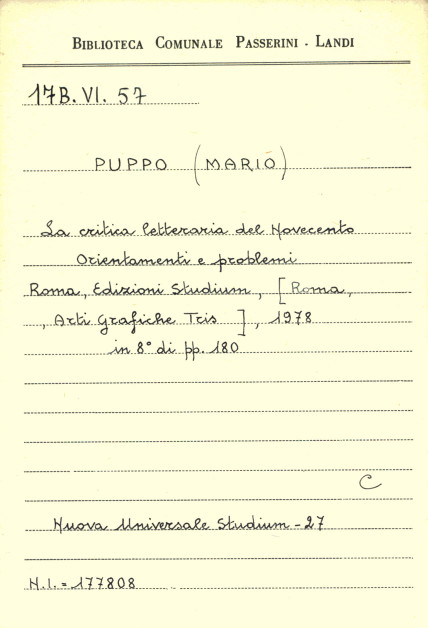 BIBLIOTECA COMUNALE PASSERINI - LANDI
17B. VI. 57
PUPPO (MARIO)
La critica letteraria del Novecento
Orientamenti e problemi
Roma, Edizioni Studium, [Roma,
, Arti Grafiche Tris], 1978
in 8° di pp. 180
C
Nuova Universale Studium - 27
N.I. = 177808